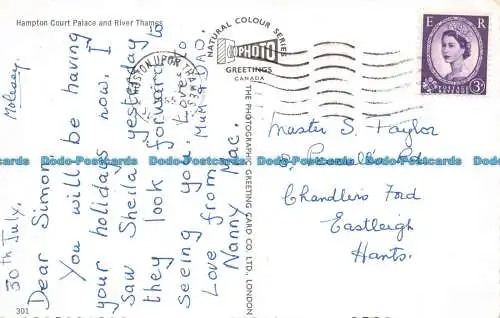 Hampton Court Palace and River Thames
Molesey
30th July.
Dear Simon
You will be having
your holidays now. I
saw Sheila yesterday
they look forward to
seeing you. Love to
Mum & Dad.
Love from
Nanny Mac.
301
NATURAL COLOUR SERIES
PHOTO
GREETINGS
CANADA
THE PHOTOGRAPHIC GREETING CARD CO. LTD., LONDON
KINGSTON UPON THAMES
E R
POSTAGE REVENUE
3D
Master S. Taylor
8, Rd
Chandlers Ford
Eastleigh
Hants.
Dodo-Postcards Dodo-Postcards Dodo-Postcards Dodo-Postcards Dodo-Postcards